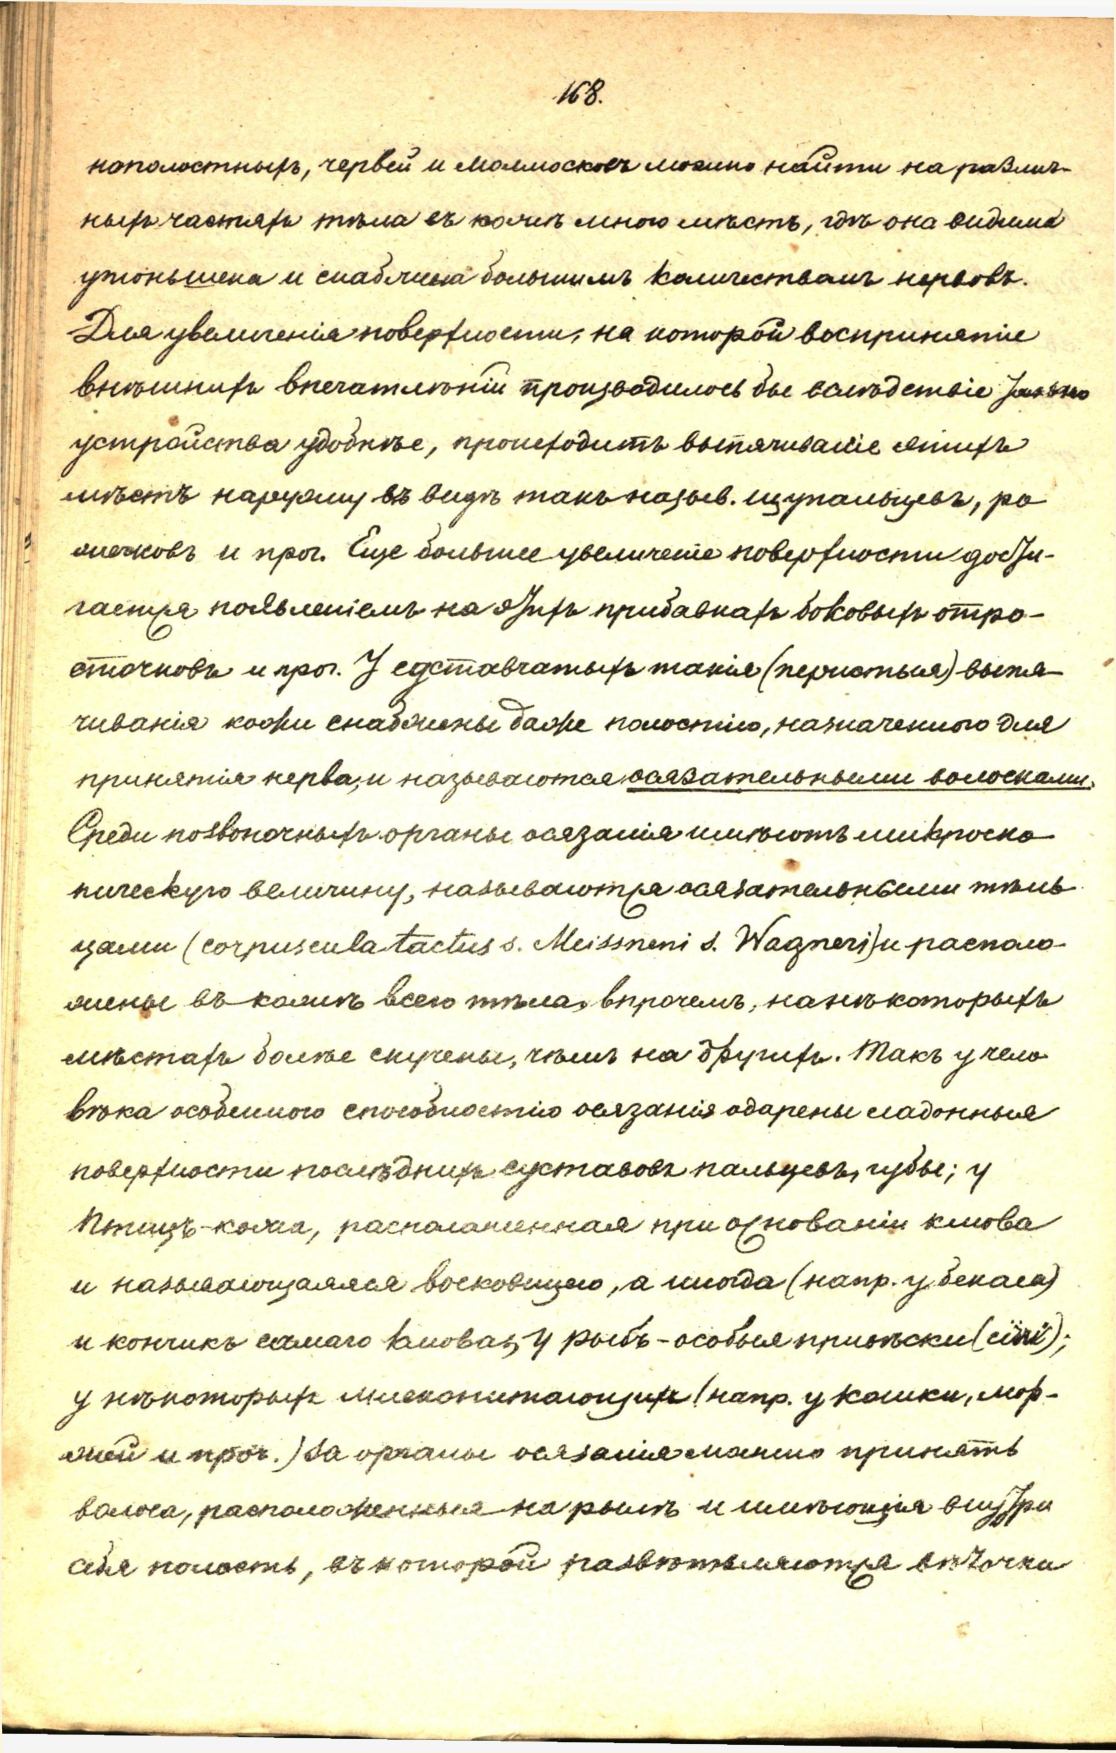 168.
нополостныхъ, червей и моллюсковъ можно найти на различ-
ныхъ частяхъ тѣла въ кожѣ много мѣстъ, гдѣ она видимо
утоньшена и снабжена большимъ количествомъ нервовъ.
Для увеличенія поверхности, на которой воспринятіе
внѣшнихъ впечатлѣній производилось бы вслѣдствіе
устройства удобнѣе, происходитъ выпячиваніе этихъ
мѣстъ наружу въ видѣ такъ назыв. щупальцевъ, ро
жечковъ и проч. Еще большее увеличеніе поверхности дости-
гается появленіемъ на этихъ прибавкахъ боковыхъ отро-
сточковъ и проч. У суставчатыхъ такія (перистыя) выпя-
чиванія кожи снабжены даже полостію, назначенною для
принятія нерва, и называются осязательными волосками.
Среди позвоночныхъ органы осязанія имѣютъ микроско
пическую величину, называются осязательными тѣль
цами (corpuscula tactus s. Meissneni s. Wagneri) и располо-
жены въ кожѣ всего тѣла, впрочемъ, на нѣкоторыхъ
мѣстахъ болѣе скучены, чѣмъ на другихъ. Такъ у чело
вѣка особенною способностію осязанія одарены ладонныя
поверхности послѣднихъ суставовъ пальцевъ, губы; у
Птицъ - кожа, расположенная при основаніи клюва
и называющаяся восковицею, а иногда (напр. у бекаса)
и кончикъ самаго клюва; у рыбъ - особыя привѣски (cirri);
у нѣкоторыхъ млекопитающихъ (напр. у кошки, мор-
жей и проч.) за органы осязанія можно принять
волоса, расположенныя на рылѣ и имѣющія внутри
себя полость, въ которой развѣтвляются вѣточки